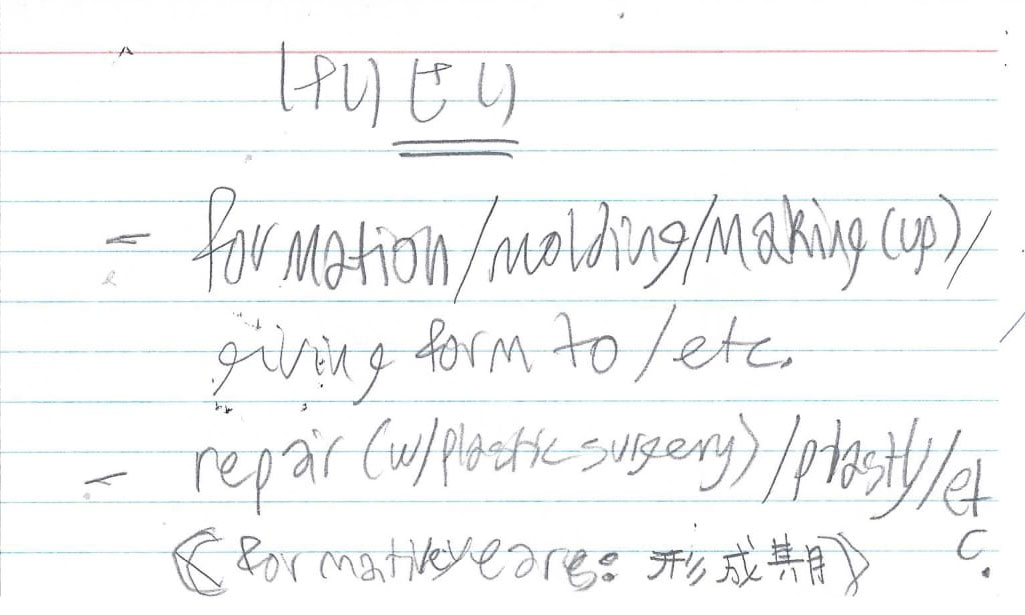 けいせい
- formation/molding/making (up)/
giving form to/etc.
- repair (w/plastic surgery)/plasty/etc.
《formative years: 形成期》